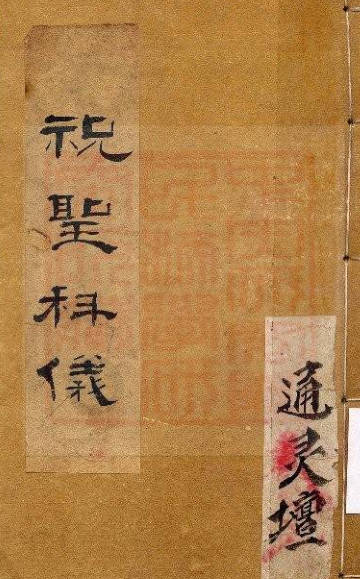 祝聖科儀
通灵壇